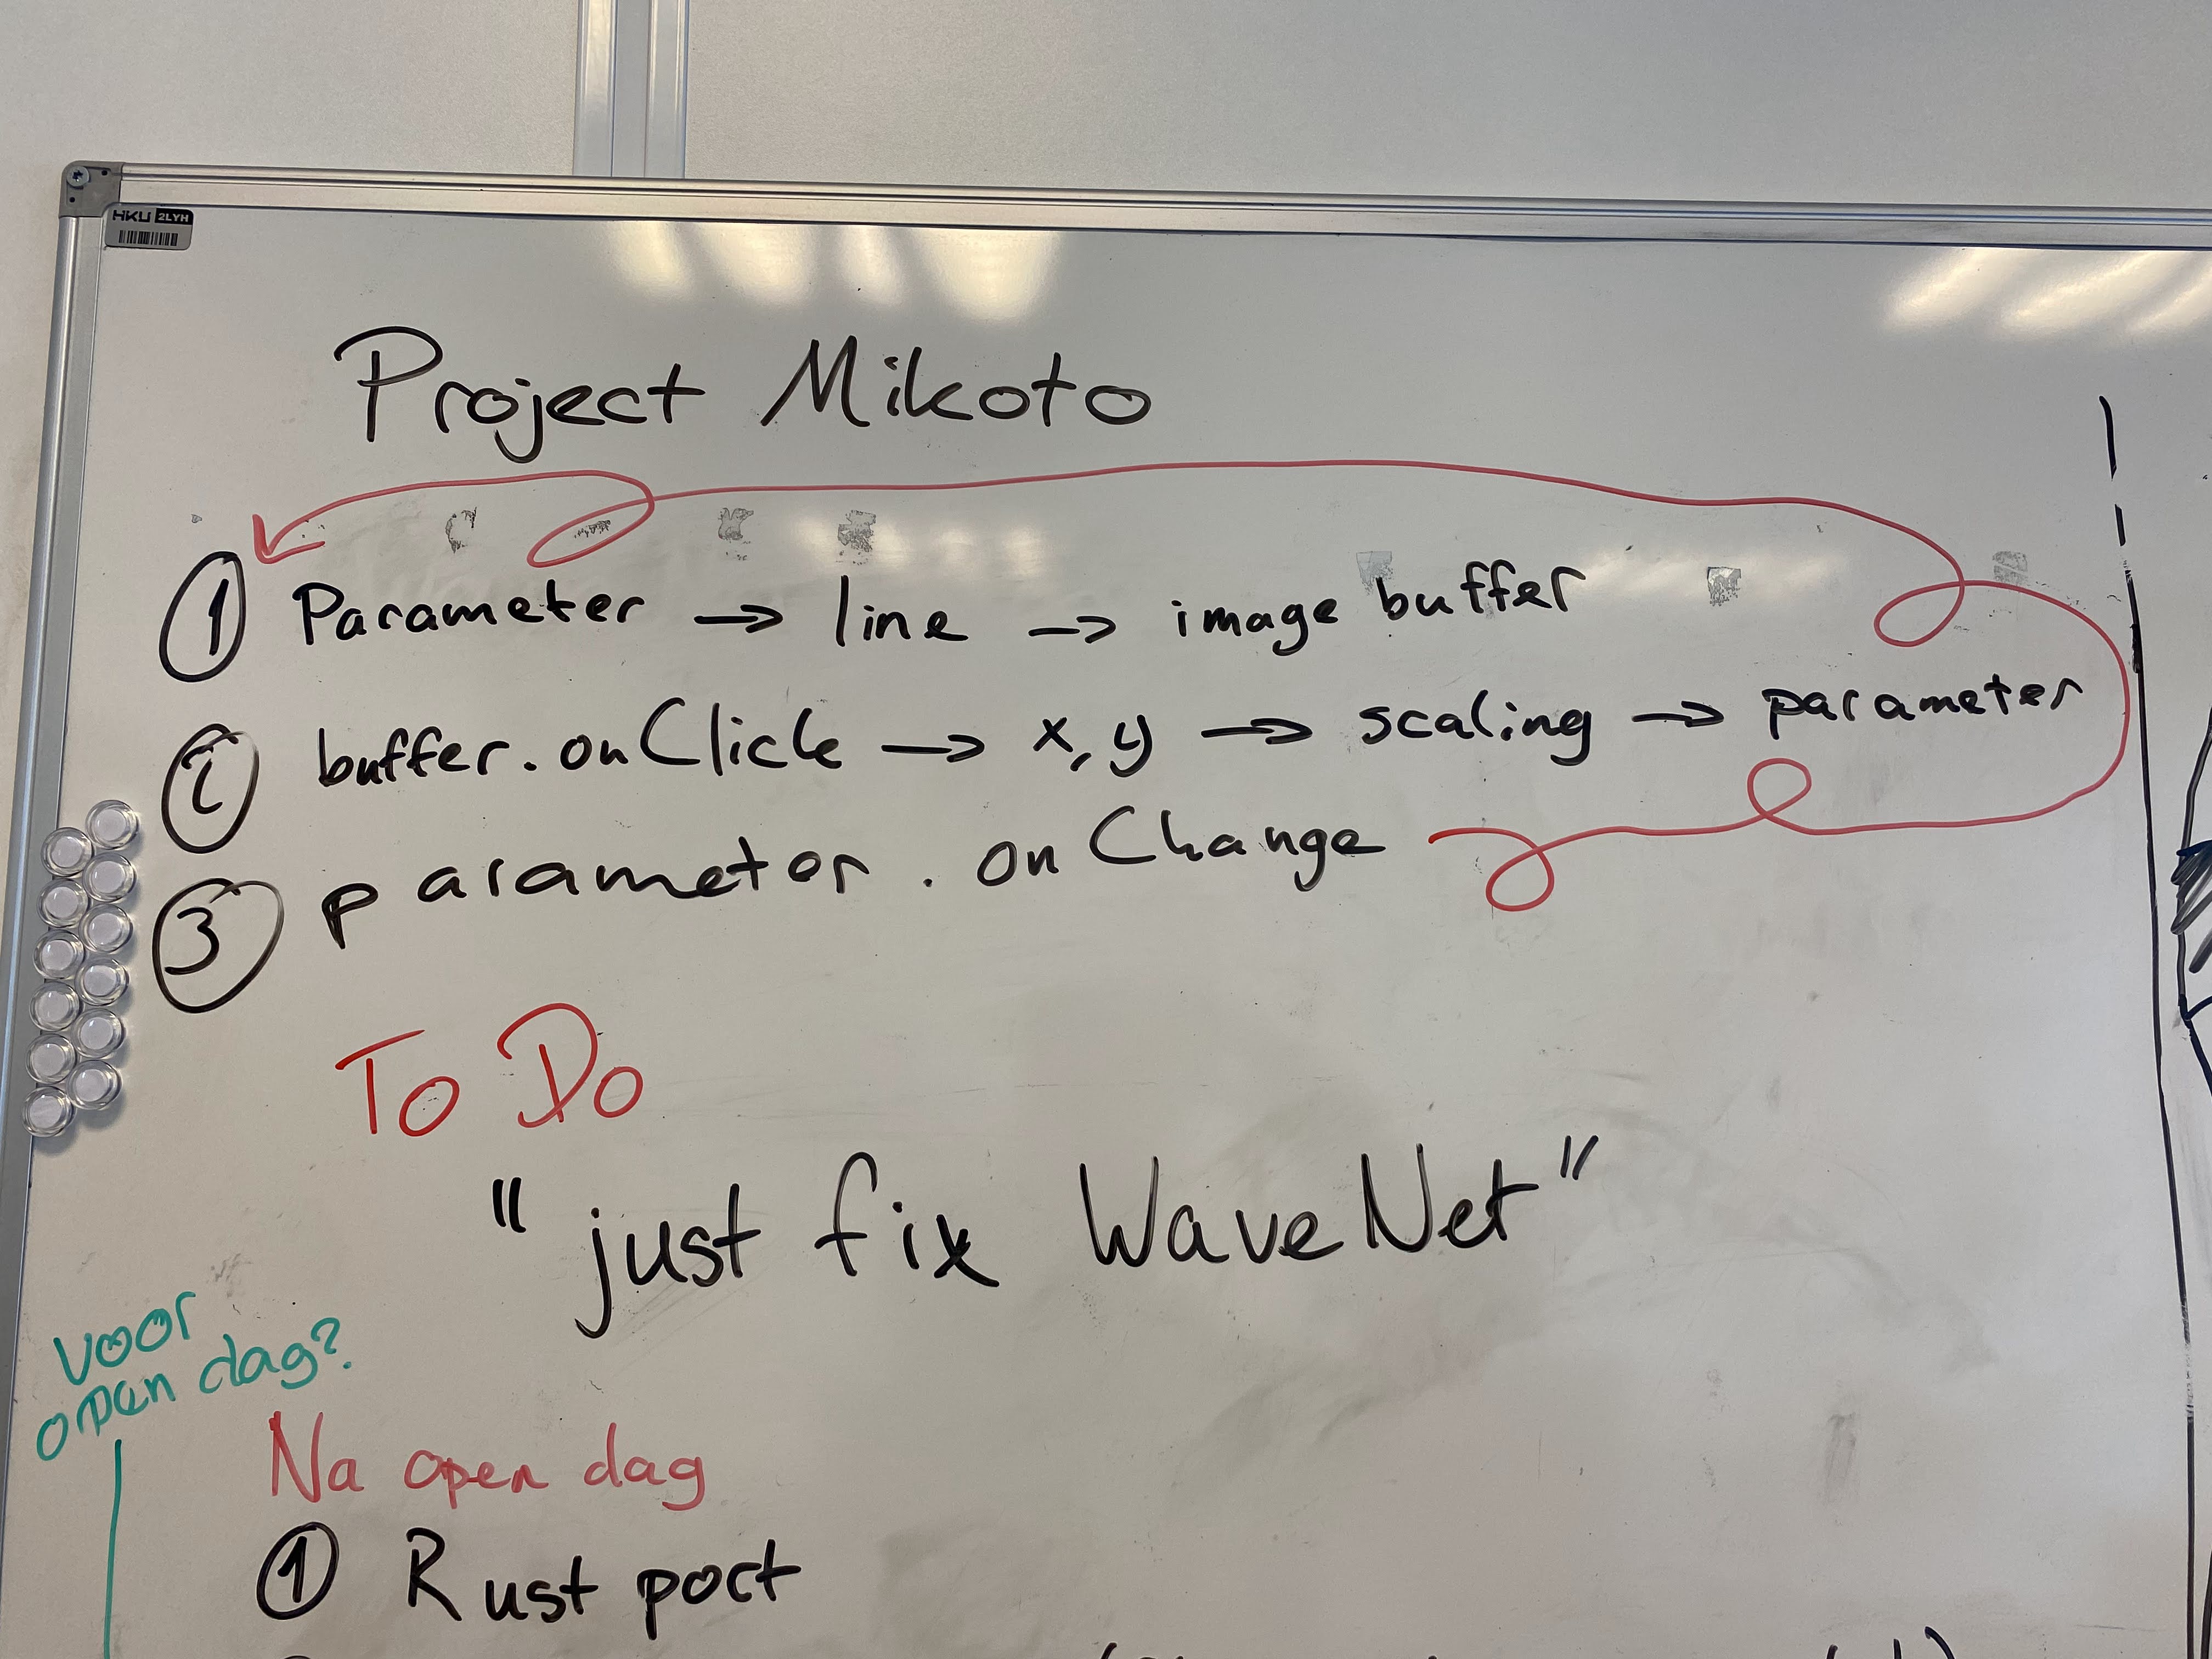 HKU 2LYH
Project Mikoto
① Parameter → line → image buffer
② buffer.onClick → x,y → scaling → parameter
③ parameter.onChange
To Do
"just fix WaveNet"
voor
open dag?
Na open dag
① Rust port